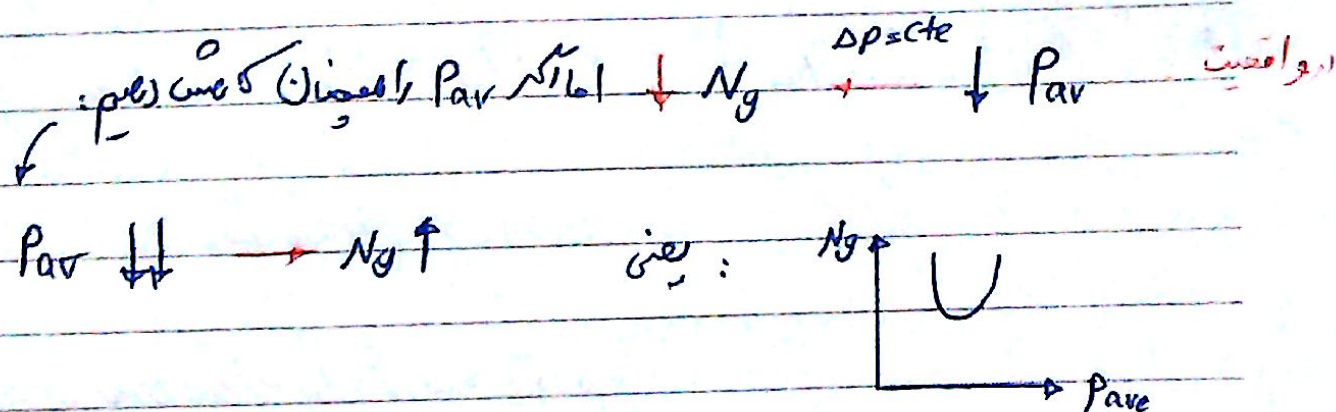 در واقعیت Pav ↓ ΔP=cte → Ng ↓ اما اگر Pav را همچنان کاهش دهیم:
Pav ↓↓ → Ng ↑ یعنی: Ng
Pave